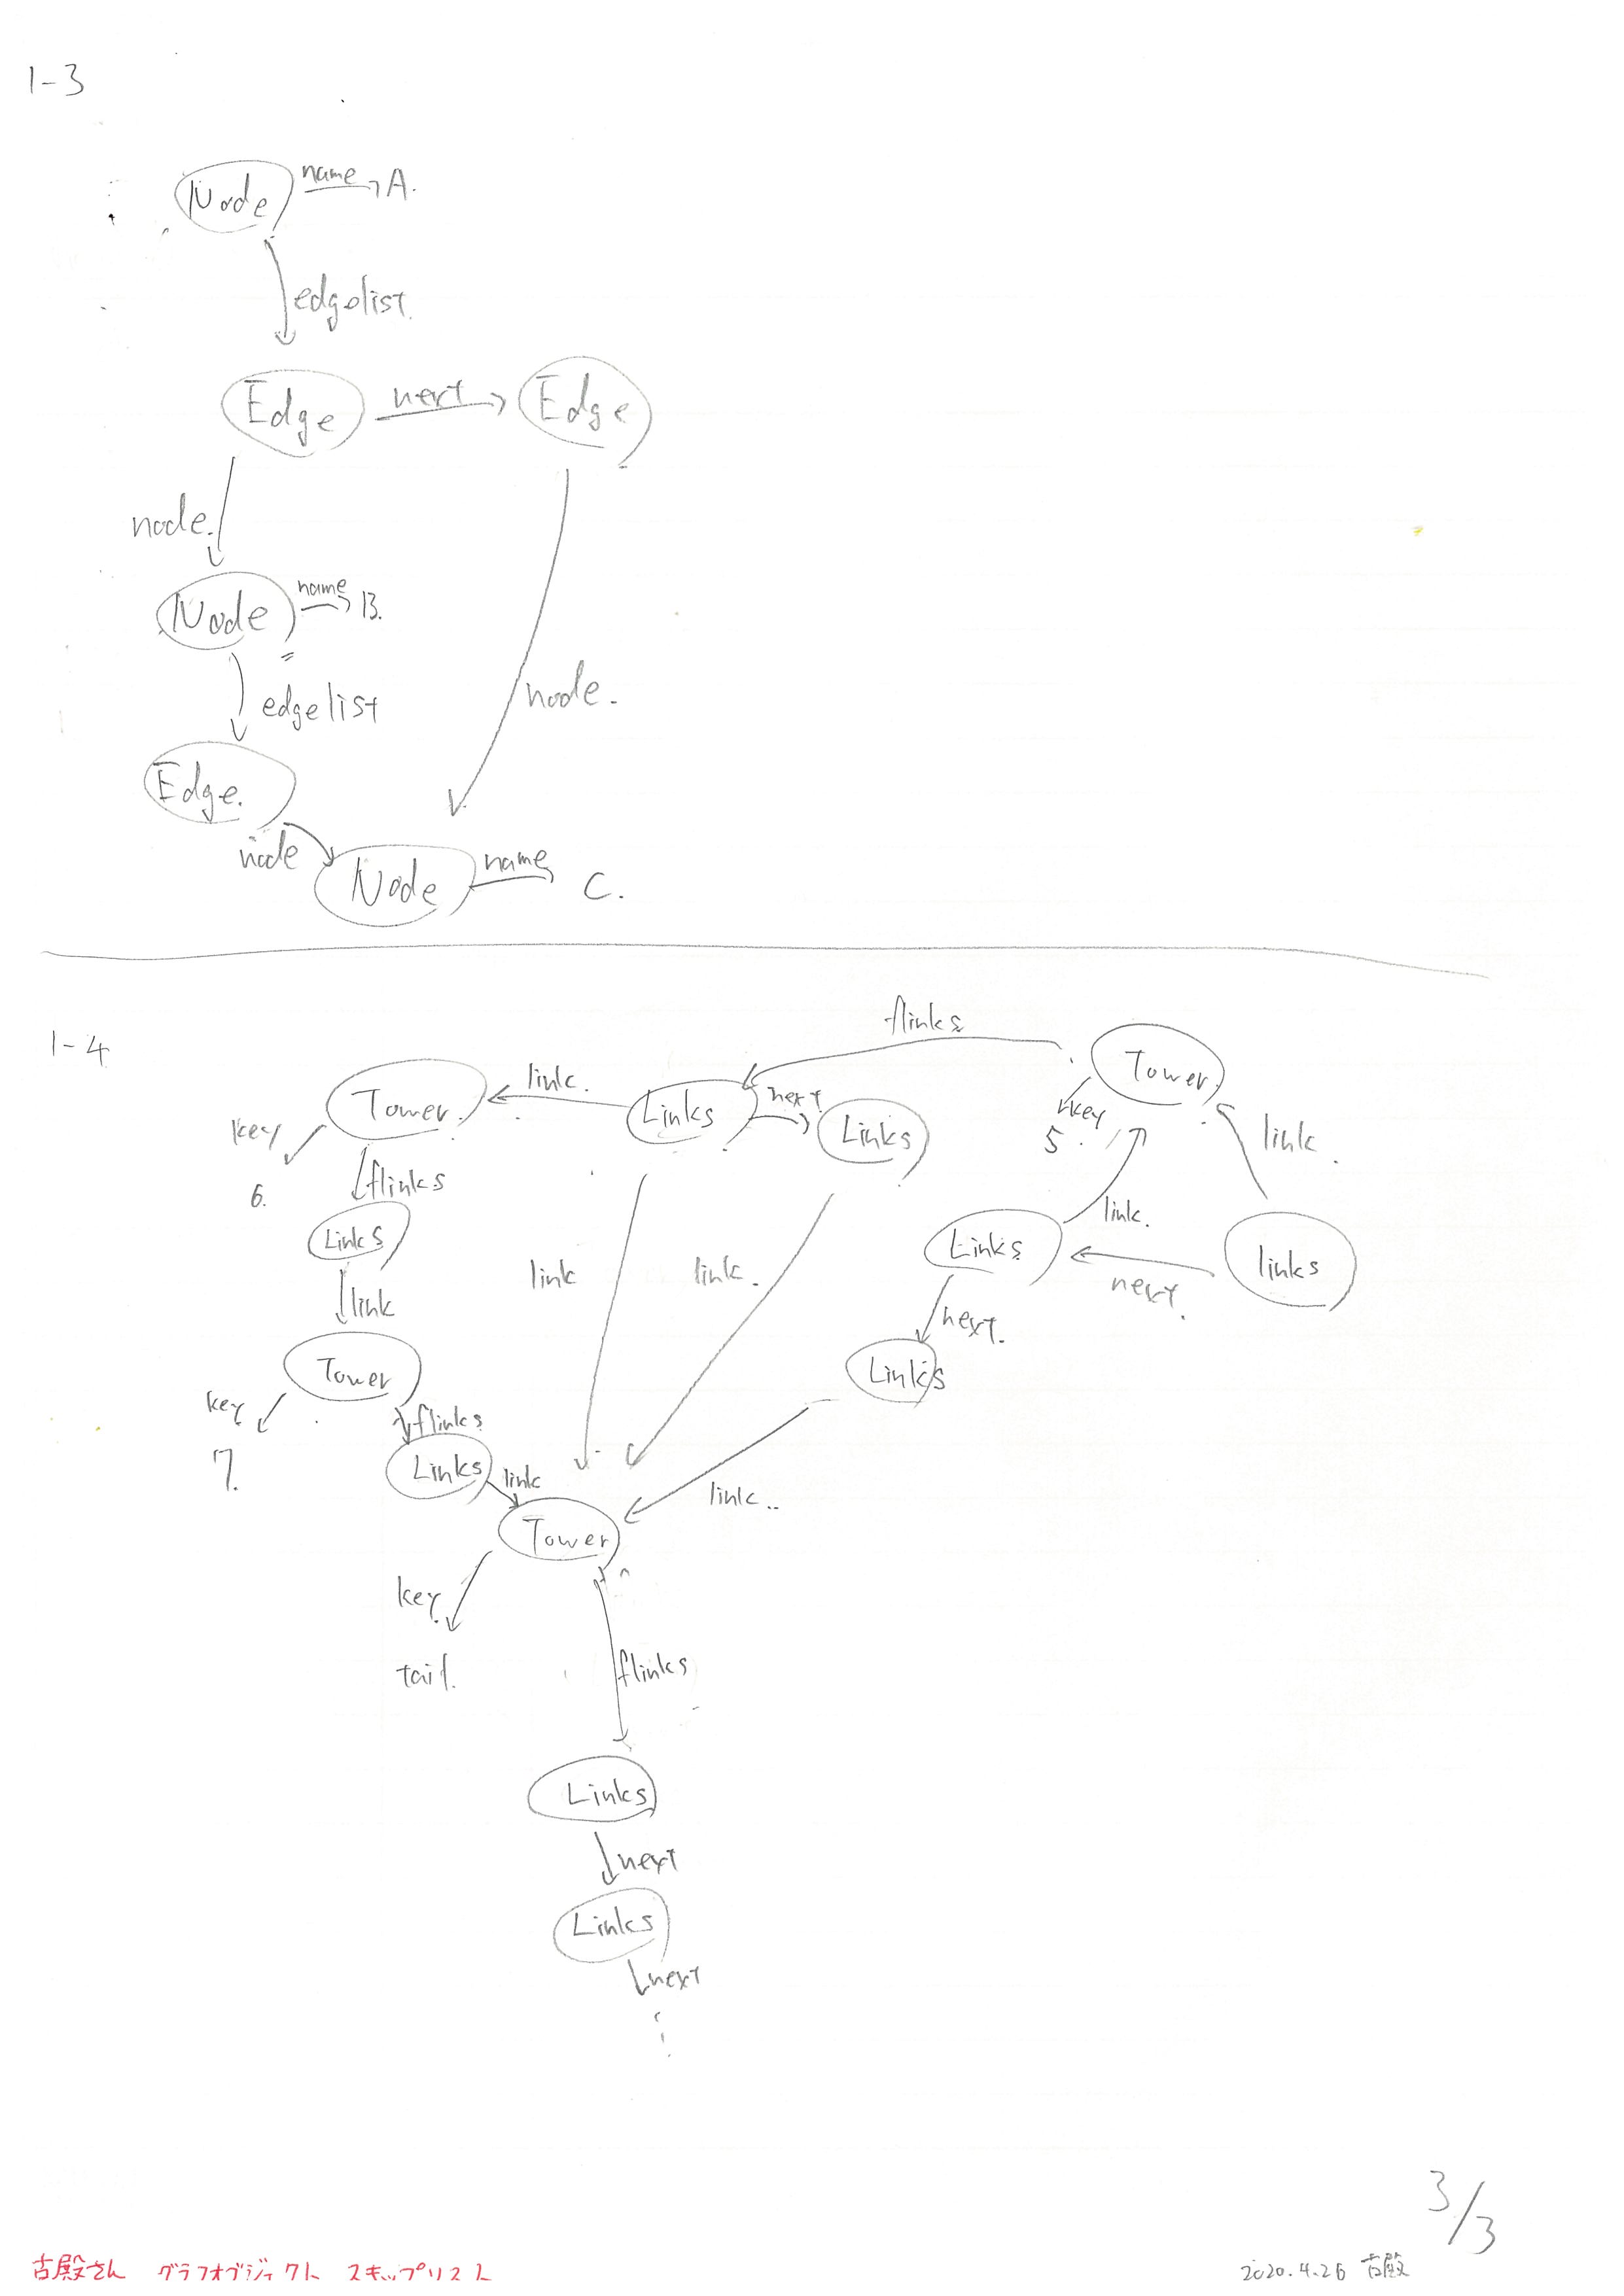 1-3
Node name A.
edgelist.
Edge next Edge
node.
Node name B.
edgelist node.
Edge.
node Node name C.
1-4
flinks
Tower. link. Links next Links Tower.
key key
6. flinks 5. link.
Links link.
link link link. Links next. links
Tower next.
key Links
7. flinks
Links link link..
Tower
key
tail. flinks
Links
next
Links
next
3/3
古殿さん グラフオブジェクト スキップリスト 2020.4.26 古殿